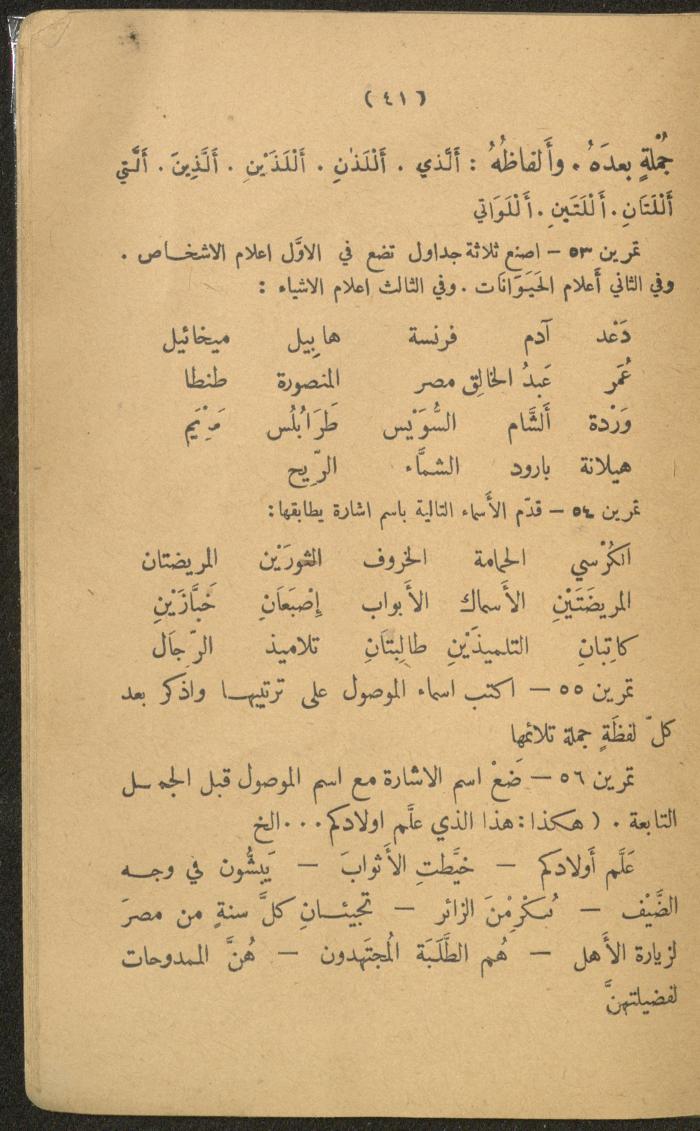 (٤١)
جُملةٍ بعدَهُ. وأَلفاظُهُ: أَلَّذي. أَللَذٰنِ. أَللَذَيْنِ. أَلَّذِينَ. أَلَّتي
أَللَتَانِ. أَللَتَينِ. أَللَوَاتي
تمرين ٥٣ – اصنع ثلاثة جداول تضع في الاوَّل اعلام الاشخاص.
وفي الثاني أَعلام الحَيَوَانَات. وفي الثالث اعلام الاشياء:
دَعْد آدم فرنسة هابِيل ميخائيل
عُمَر عَبدُ الخالِق مصر المنصورة طنطا
وَرْدة أَلشَّام السُّوَيْس طَرَابُلُس مَرْيَم
هيلانة بارود الشمَّاء الرِّيح
تمرين ٥٤ – قدّم الأَسماء التالية باسم اشارة يطابقها:
الكُرْسي الحمامة الخروف الثورَيْن المريضتان
المريضَتَيْنِ الأَسماك الأَبواب إِصْبَعَانِ خَبَّازَيْنِ
كاتِبانِ التلميذَيْنِ طالِبتَانِ تلاميذ الرِّجَال
تمرين ٥٥ – اكتب اسماء الموصول على ترتيبها واذكر بعد
كلّ لفظَةٍ جملة تلائمها
تمرين ٥٦ – ضَعْ اسم الاشارة مع اسم الموصول قبل الجمل
التابعة. (هكذا: هذا الذي علَّم اولادكم...الخ
عَلَّم أَولادكم – خيَّطتِ الأَثوابَ – يَبشُّون في وجه
الضَّيْف – يُكْرِمْنَ الزائر – تجيئانِ كلَّ سنةٍ من مصرَ
لزيارة الأَهل – هُم الطَّلَبَة المُجتَهدون – هُنَّ الممدوحات
لفضيلتهنَّ